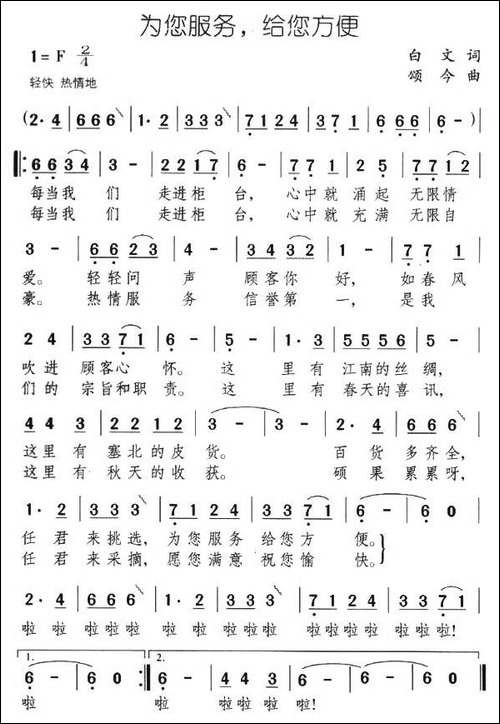 为您服务，给您方便
1=F 2/4
白文词
轻快 热情地
颂今曲
(2·4 | 666 | 1·2 | 333 | 7124 | 371 | 666 | 6 -) |
6634 | 3 - | 2217 | 6 - | 771 | 25 | 7712 |
每当我们 走进柜台，心中就涌起无限情
每当我们 走进柜台，心中就充满无限自
3 - | 6623 | 4 - | 3432 | 1 - | 771 |
爱。轻轻问声 顾客你好，如春风
豪。热情服务 信誉第一，是我
24 | 3371 | 6 - | 5 - | 1·3 | 5556 | 5 - |
吹进顾客心怀。这里有江南的丝绸，
们的宗旨和职责。这里有春天的喜讯，
443 | 2212 | 3 - | 3 - | 2·4 | 666 |
这里有塞北的皮货。百货多齐全，
这里有秋天的收获。硕果累累呀，
1·2 | 333 | 7124 | 3371 | 6 - | 60 |
任君来挑选，为您服务给您方便。
任君来采摘，愿您满意祝您愉快。
2·4 | 666 | 1·2 | 333 | 7124 | 3371 |
啦啦 啦啦啦 啦啦 啦啦啦 啦啦啦啦 啦啦啦！
1. 2.
6 - | 60 :| 6 - | 443 | 6 - | 60 ||
啦 啦 啦啦啦 啦！